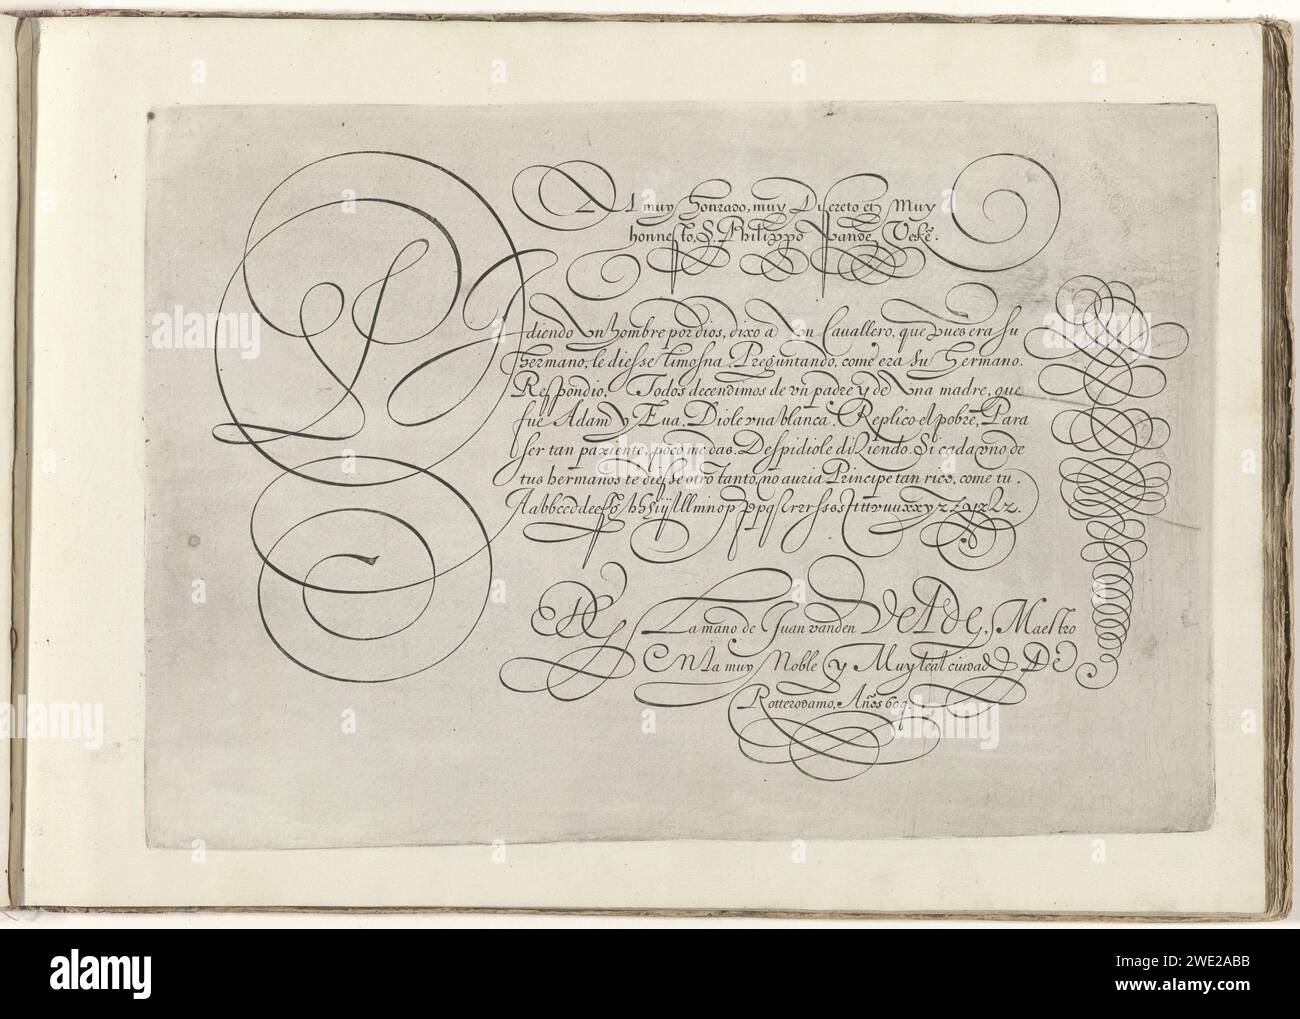 Al muy Honrado, muy Discreto et Muy
honnesto, S. Philippo Vande Veke.
Pidiendo Vn hombre por dios, dixo a Vn Cauallero, que pues era su
hermano, le diesse limosna. Preguntando, come era su Hermano.
Respondio. Todos decendimos de vn padre y de Vna madre, que
fue Adam y Eua. Diole vna blanca. Replico el pobre, Para
ser tan pariente, poco me das. Despidiole diZiendo. Si cada vno de
tus hermanos te diesse otro tanto, no auria Principe tan rico, come tu.
De La mano de Juan vanden VelDe, Maestro
En La muy Noble y Muy leal ciudad DE
Rotterodamo, Años 609.
alamy
Image ID: 2WE2ABB
www.alamy.com